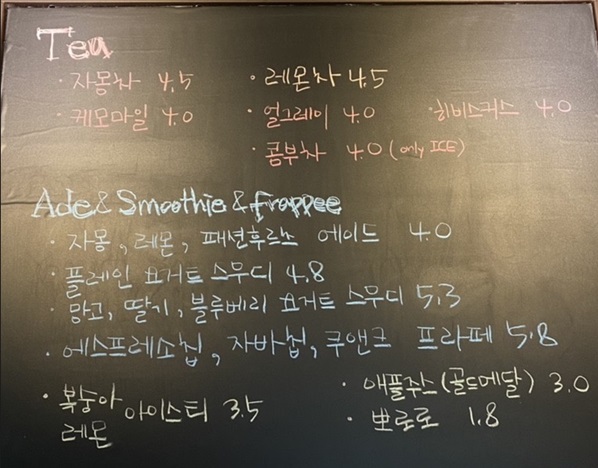 Tea
· 자몽차 4.5 · 레몬차 4.5
· 케모마일 4.0 · 얼그레이 4.0 · 히비스커스 4.0
· 콤부차 4.0 (only ICE)
Ade & Smoothie & frappee
· 자몽, 레몬, 패션후르츠 에이드 4.0
· 플레인 요거트 스무디 4.8
· 망고, 딸기, 블루베리 요거트 스무디 5.3
· 에스프레소칩, 자바칩, 쿠앤크 프라페 5.8
· 복숭아 아이스티 3.5
레몬
· 애플주스 (골드메달) 3.0
· 뽀로로 1.8